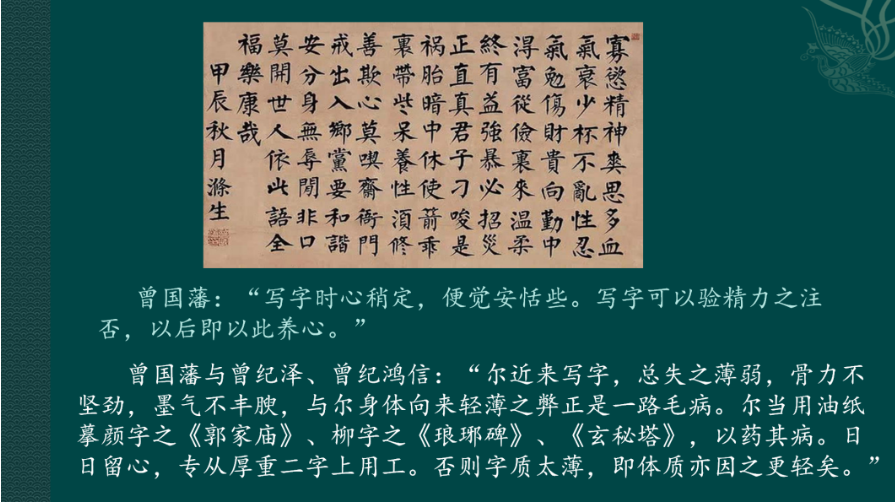 寡慾精神爽思多血
氣衰少杯不亂性忍
氣勉傷財貴向勤中
淂富從儉裏來溫柔
終有益強暴必招災
正直真君子刁唆是
禍胎暗中休使箭乖
裏帶些呆養性湏修
善欺心莫喫齋衙門
戒出入鄉黨要和諧
安分身無辱閒非口
莫開世人依此語全
福樂康哉
甲辰秋月滌生
曾国藩：“写字时心稍定，便觉安恬些。写字可以验精力之注
否，以后即以此养心。”
曾国藩与曾纪泽、曾纪鸿信：“尔近来写字，总失之薄弱，骨力不
坚劲，墨气不丰腴，与尔身体向来轻薄之弊正是一路毛病。尔当用油纸
摹颜字之《郭家庙》、柳字之《琅琊碑》、《玄秘塔》，以药其病。日
日留心，专从厚重二字上用工。否则字质太薄，即体质亦因之更轻矣。”